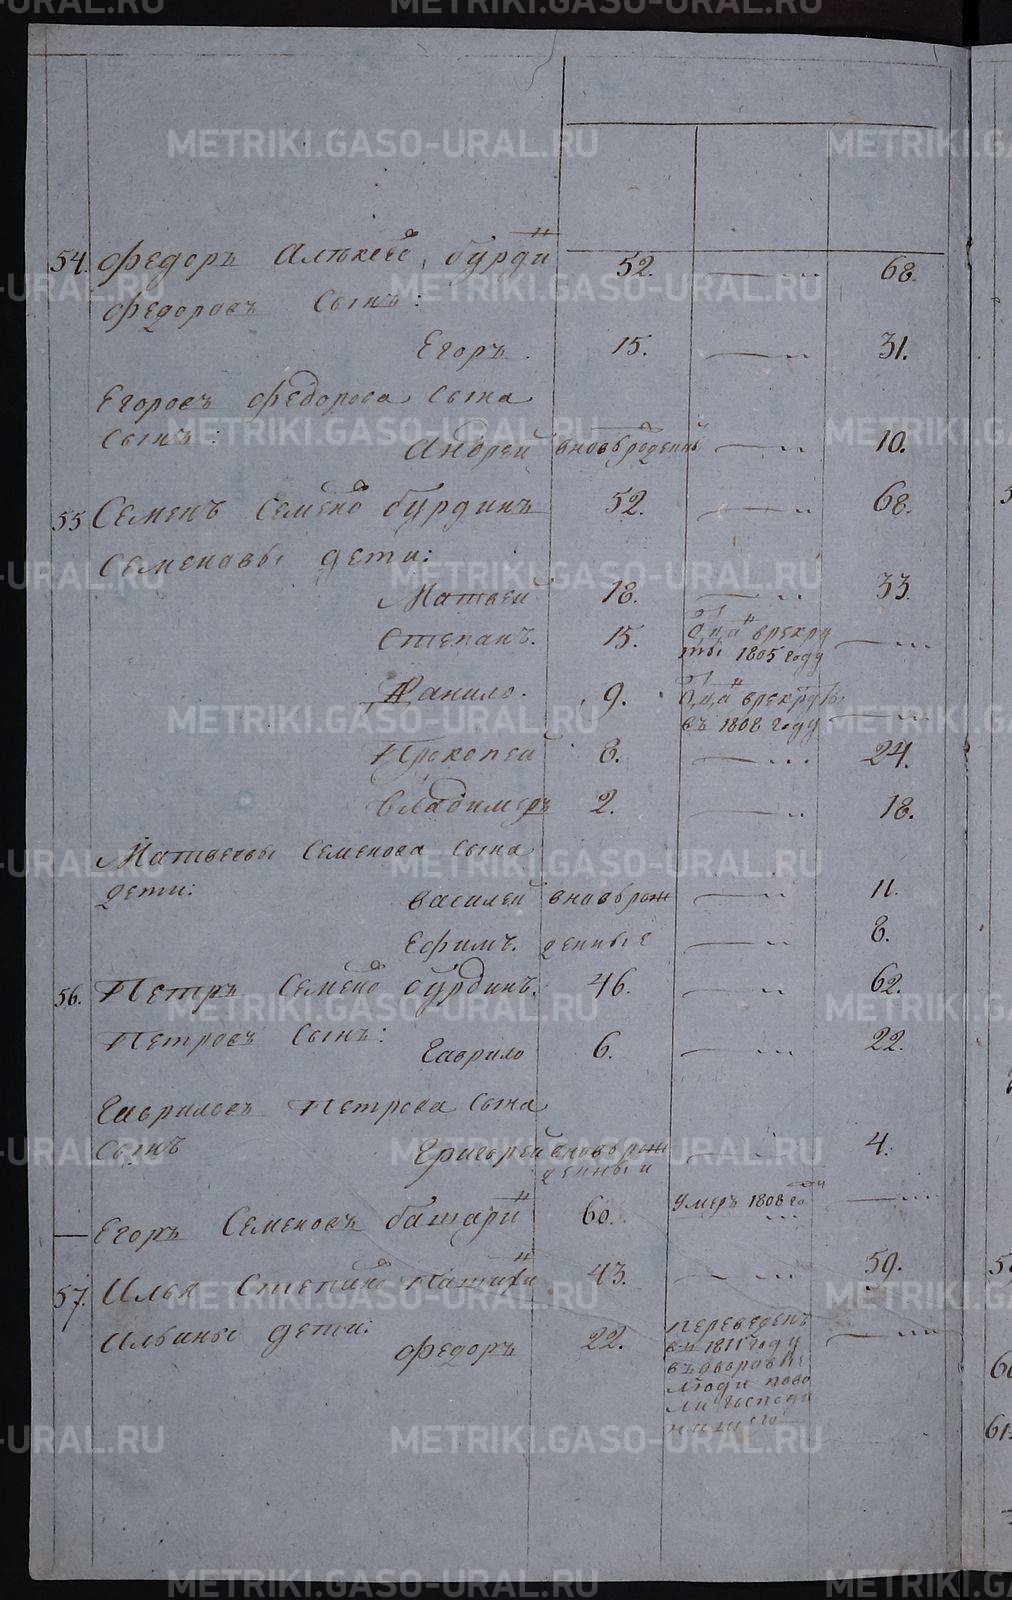 METRIKI.GASO-URAL.RU
54. Федоръ Алѣксѣе, бурди н 52. — .. 68.
Федоровъ Сынъ:
Егоръ. 15. — .. 31.
Егоровъ Федорова Сына
Сынъ: Андрей вновьрожденны й — .. 10.
55 Семенъ Семено бурдинъ 52. — .. 68.
Семеновы дети:
Матвей 18. — .. 33.
Степанъ. 15. врекру
ты 1805 году — ..
Данило. 9. врекруты
въ 1808 году — ..
Прокопей 8. — ... 24.
Владимеръ 2. — .. 18.
Матвеевы Семенова Сына
дети: Василей вновьрож — .. 11.
Ефимъ. денные — .. 8.
56. Петръ Семено бурдинъ. 46. — .. 62.
Петровъ Сынъ: Гаврило 6. — ... 22.
Гавриловъ Петрова Сына
Сынъ Григорей вноворож — .. 4.
денный
— Егоръ Семеновъ 60. Умеръ 1808 го — ...
57. Илья Степано 43. — ... 59.
Ильины дети: Федоръ 22. Переведенъ — ...
въ 1811 году
въдворовые
люди пово
ли господи
нашего